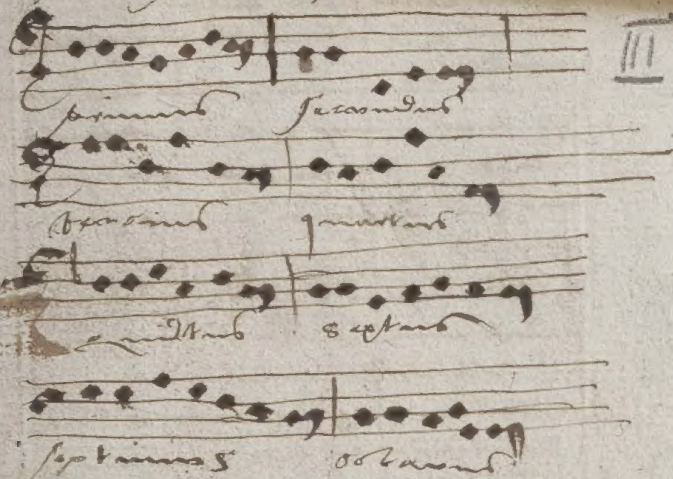 III
primus secundus
tercius quartus
quintus sextus
septimus octavus